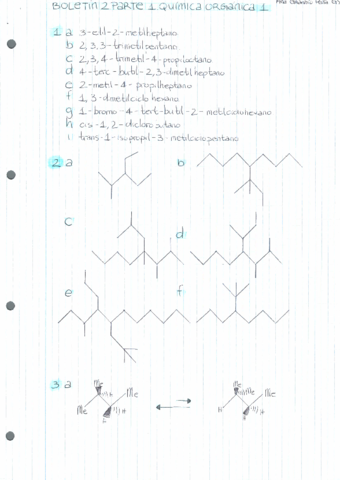 BOLETÍN 2 PARTE 1 QUÍMICA ORGÁNICA 1
1 a 3-etil-2-metilheptano
b 2,3,3-trimetilpentano
c 2,3,4-trimetil-4-propiloctano
d 4-terc-butil-2,3-dimetilheptano
e 2-metil-4-propilheptano
f 1,3-dimetilciclohexano
g 1-bromo-4-tert-butil-2-metilciclohexano
h cis-1,2-diclorobutano
i trans-1-isopropil-3-metilciclopentano
2 a b
c d
e f
3 a
Me Me
Me Me
Me
H H
H